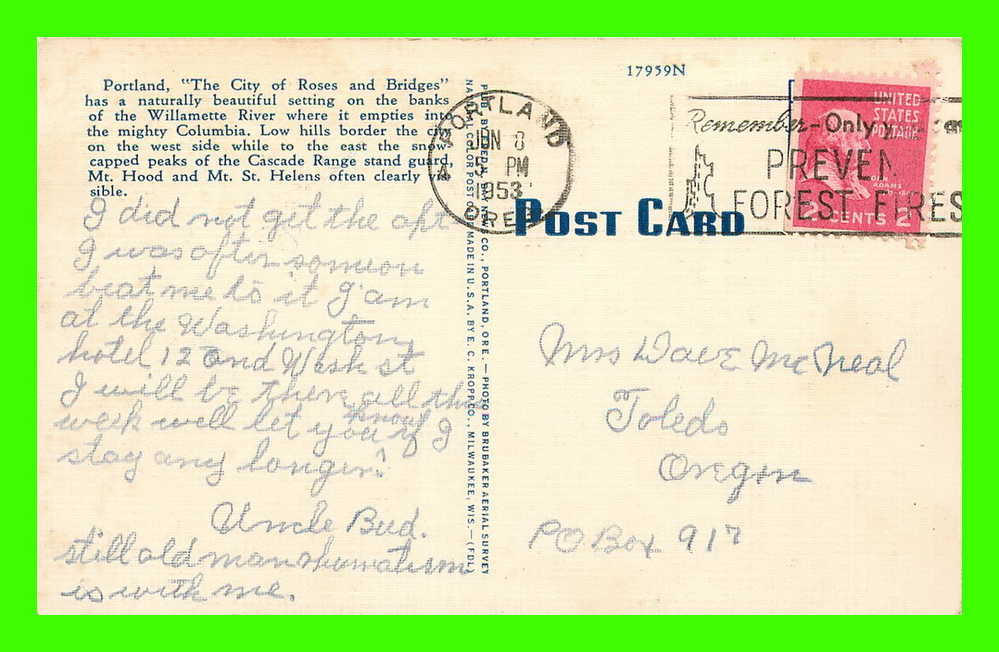 Portland, "The City of Roses and Bridges"
has a naturally beautiful setting on the banks
of the Willamette River where it empties into
the mighty Columbia. Low hills border the city
on the west side while to the east the snow-
capped peaks of the Cascade Range stand guard,
Mt. Hood and Mt. St. Helens often clearly vi-
sible.
I did not get the apt
I was after someon
beat me to it I am
at the Washington
hotel 12 and Wash st
I will be there all this
week well let you know if I
stay any longer.
Uncle Bud.
still old man rhumatism
is with me.
NATURAL COLOR POST CARD MADE IN U.S.A. BY E. C. KROPP CO., MILWAUKEE, WIS.—(FDL)
PUB. BY CO., PORTLAND, ORE.—PHOTO BY BRUBAKER AERIAL SURVEY
17959N
PORTLAND
JUN 8
5 PM
1953
OREG
POST CARD
Remember-Only
PREVEN
FOREST FIRES
UNITED
STATES
POSTAGE
JOHN
ADAMS
2 CENTS 2
Mrs Dave McNeal
Toledo
Oregon
PO Box 917